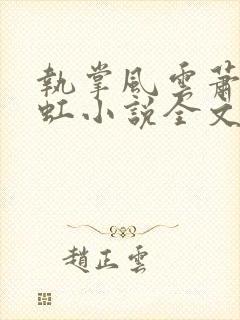 執掌風雲蕭
虹小說全文
趙正雲